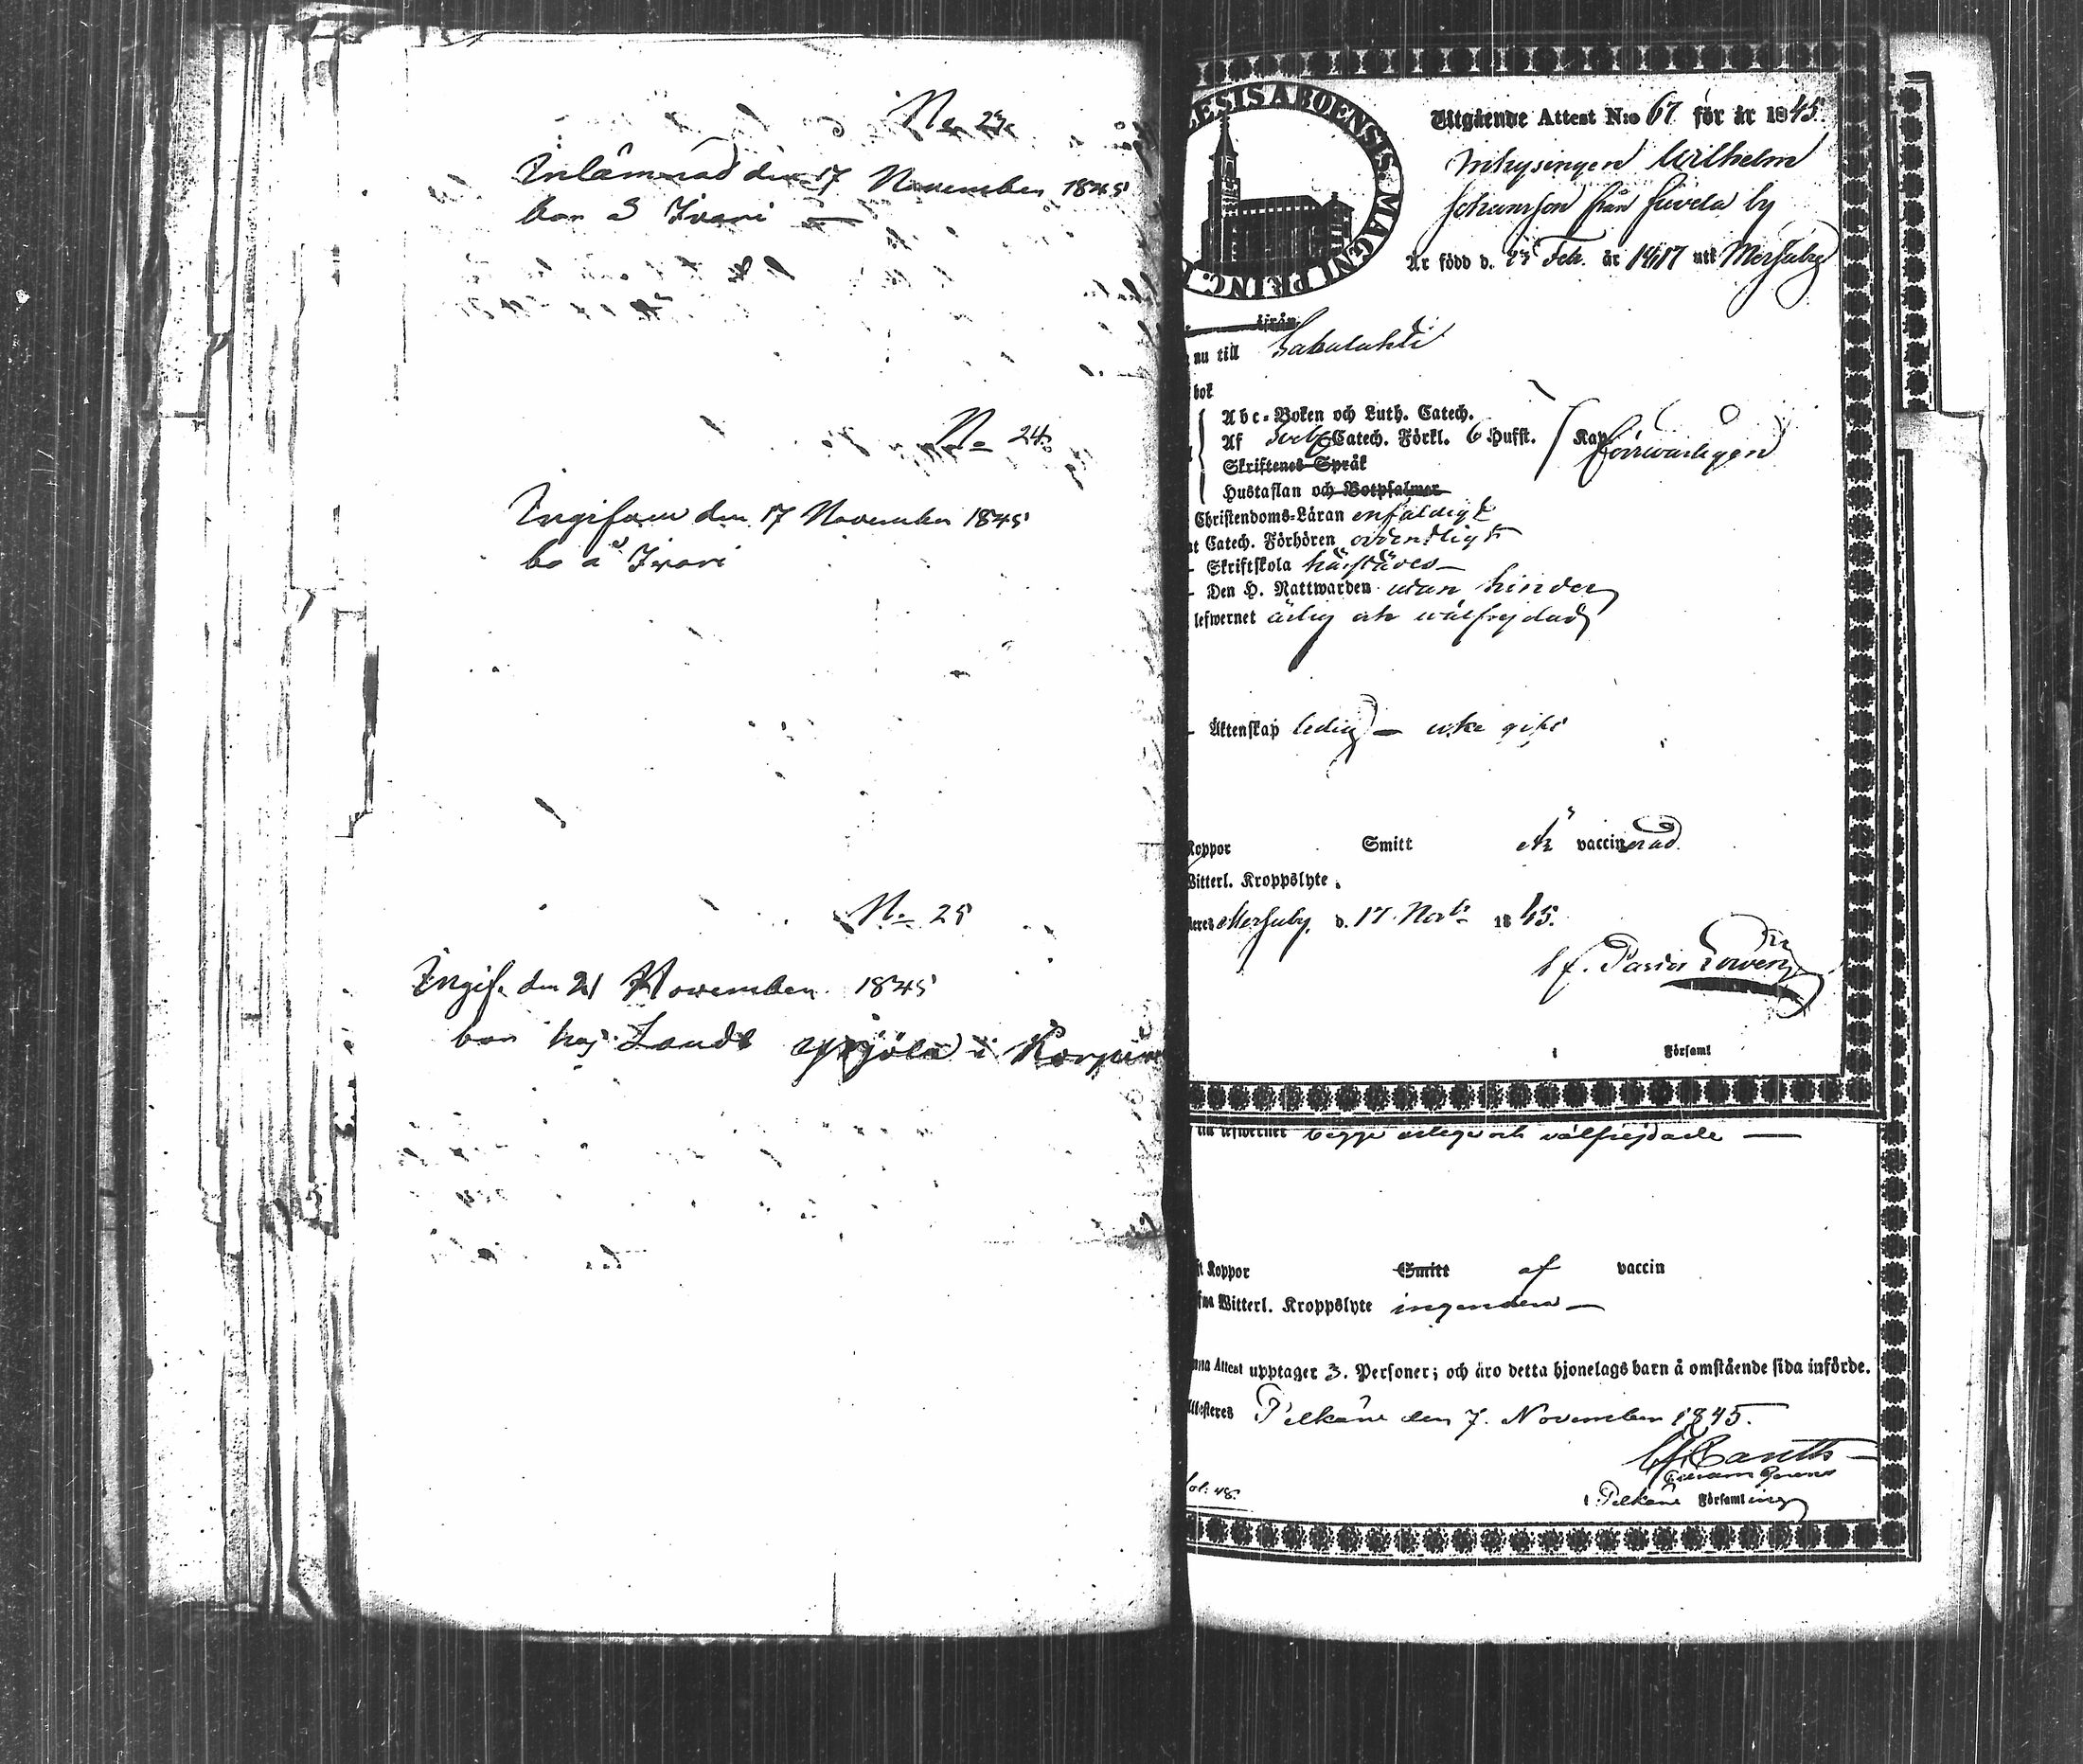 No 23.
Inlämnad den 17 November 1845
bor å Ivari
No 24.
Ingifven den 17 November 1845
bo å Ivari
No 25
Ingif. den 21 November 1845
bor hos Landt i
LESIS ABOENSIS. MAGNI PRINC.
Utgående Attest N:o 67 för år 1845.
Inhysingen Wilhelm
Johansson från by
Är född d. 23 Feb. år 1817 uti Merjuby
ifrån
nu till Sabalahti
bok
Abc-Boken och Luth. Catech.
Af Sveb Catech. Förkl. 6 Hufst. Kap. försvarligen
Skriftenes Språk
Hustaflan och Botpsalmer
Christendoms-Läran enfaldigt
Catech. Förhören ordentligt
Skriftskola härstädes
Den H. Nattwarden utan hinder
lefwernet ärlig och wälfrejdad
Äktenskap ledig icke gift
Koppor Smitt är vaccinerad
Witterl. Kroppslyte
Merjuby, d. 17 Nov. 1845.
Församl
lefwernet begge ärliga och välfrejdade
Koppor Smitt af vaccin
Witterl. Kroppslyte ingendera
Attest upptager 3. Personer; och äro detta hjonelags barn å omstående sida införde.
Pelkäne den 7. November 1845.
i Pelkäne Församling
fol: 48.